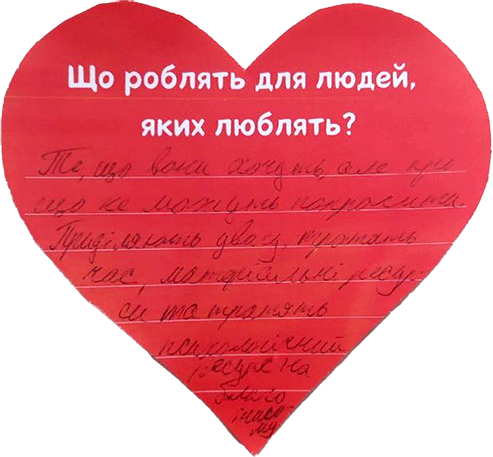 Що роблять для людей,
яких люблять?
Те, що вони хочуть, але про
що не можуть попросити.
Приділяють увагу, тратять
час, матеріальні ресур-
си та тратять
психологічний
ресурс на
благо
іншо-
му